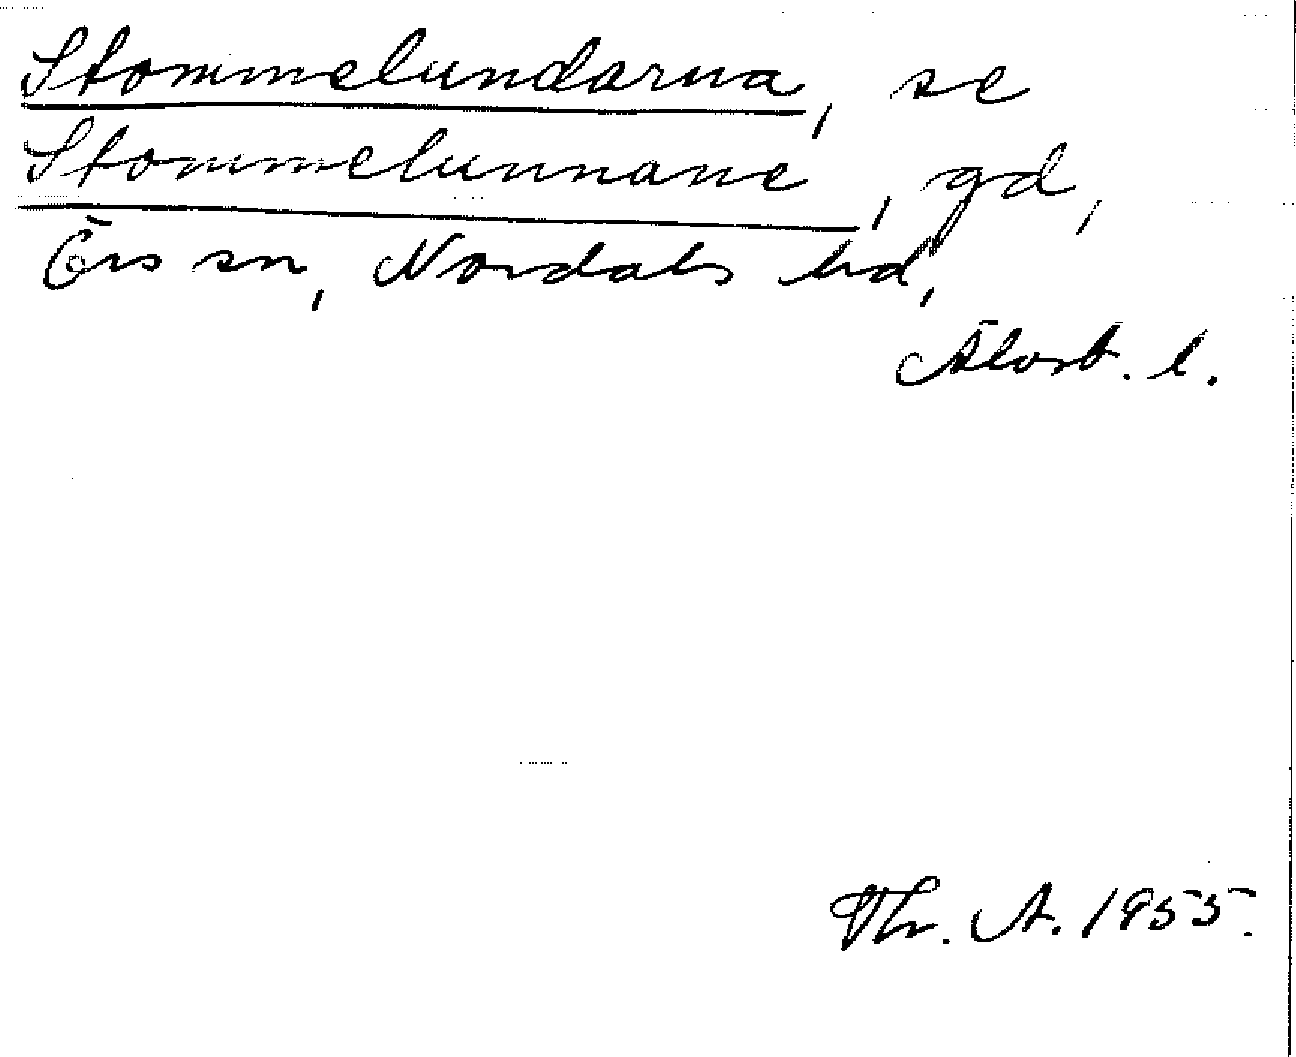 Stommelundarna, se
Stommelunnane, gd,
Örs sn, Nordals hd,
Älvsb. l.
Thr. A. 1955.